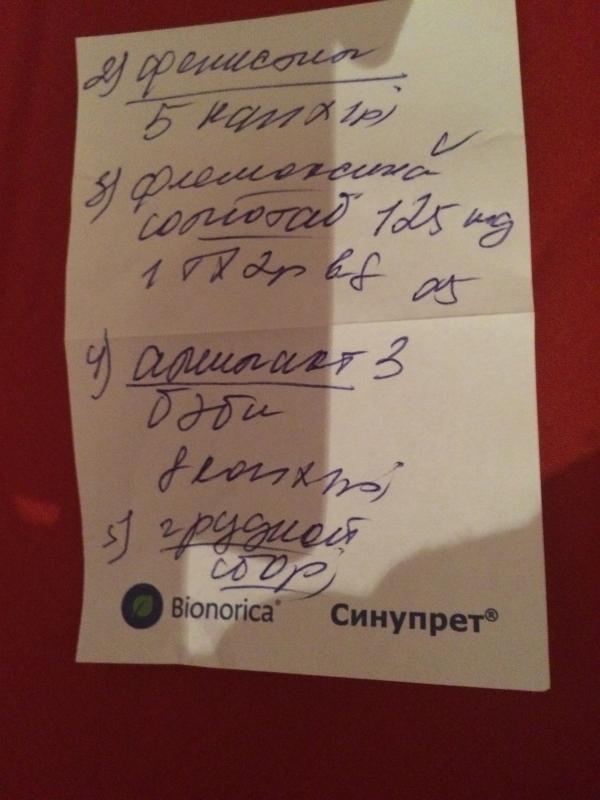 2) фенистил
5 кап х 1р
3) флемоксин
солютаб 125 мд
1 т х 2р в д
4)
бэби
8 кап х
5) грудной
сбор
Bionorica®
Синупрет®